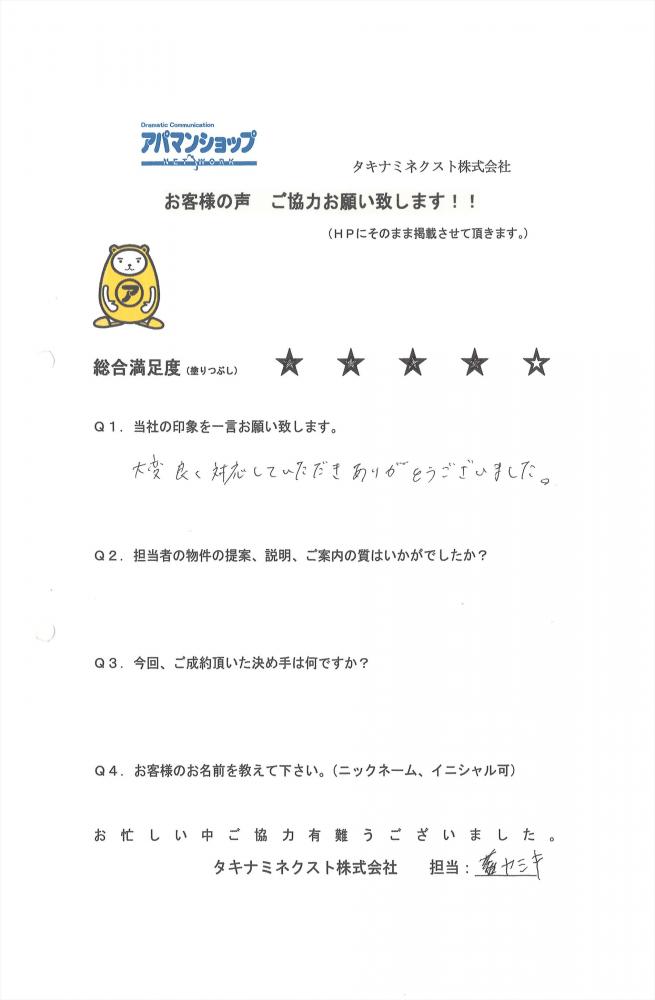 Dramatic Communication
アパマンショップ
NETWORK
タキナミネクスト株式会社
お客様の声　ご協力お願い致します！！
（ＨＰにそのまま掲載させて頂きます。）
ア
総合満足度（塗りつぶし） ★ ★ ★ ★ ☆
Ｑ１．当社の印象を一言お願い致します。
大変良く対応していただきありがとうございました。
Ｑ２．担当者の物件の提案、説明、ご案内の質はいかがでしたか？
Ｑ３．今回、ご成約頂いた決め手は何ですか？
Ｑ４．お客様のお名前を教えて下さい。（ニックネーム、イニシャル可）
お忙しい中ご協力有難うございました。
タキナミネクスト株式会社　担当：ヤシキ